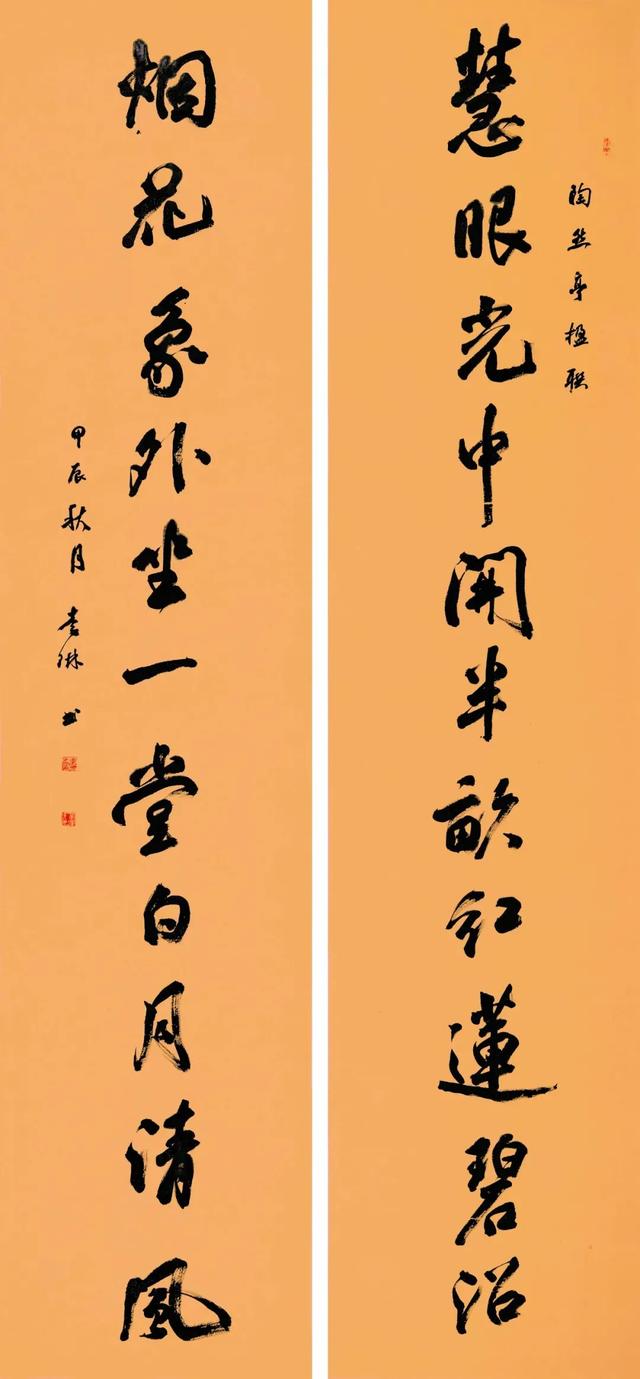 陶然亭楹聯
慧眼光中開半畝紅蓮碧沼
烟花象外坐一堂白月清風
甲辰秋月 琳 书